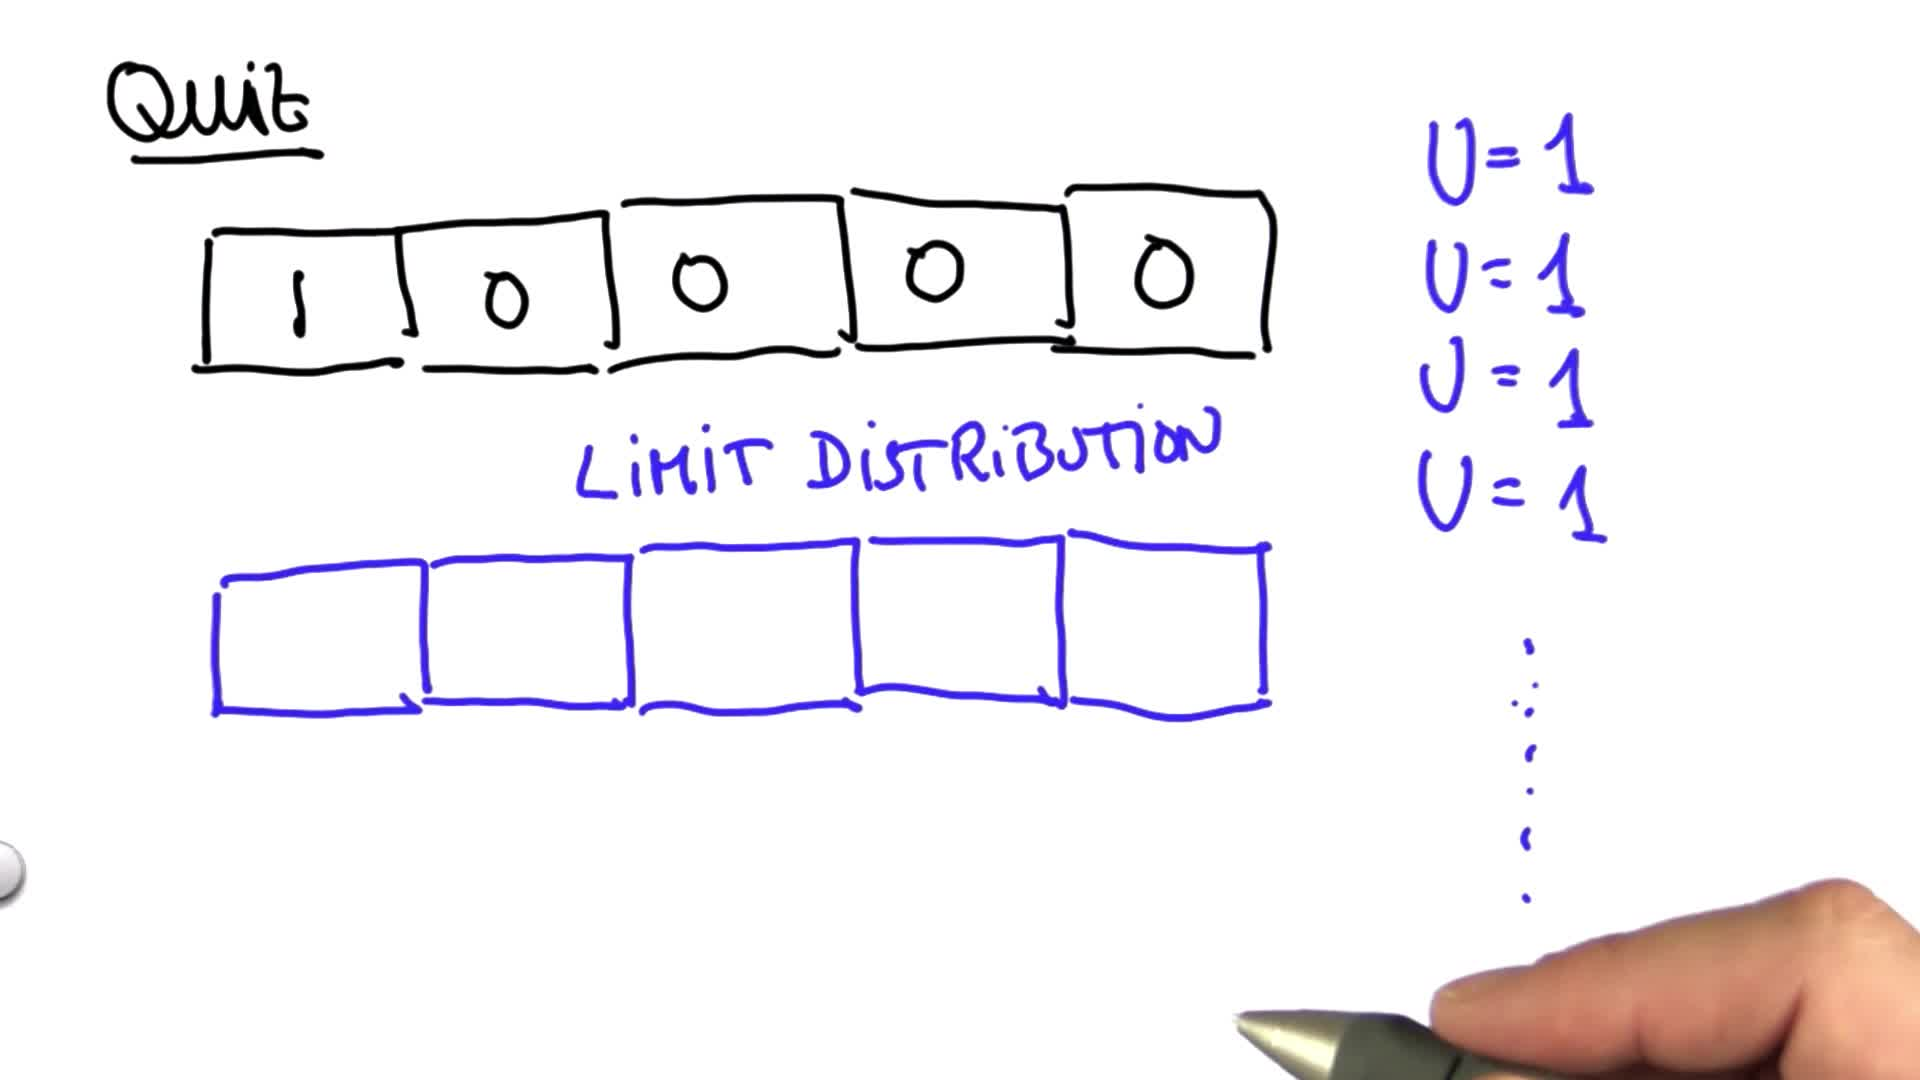 Quiz
1 0 0 0 0
LIMIT DISTRIBUTION
U = 1
U = 1
U = 1
U = 1